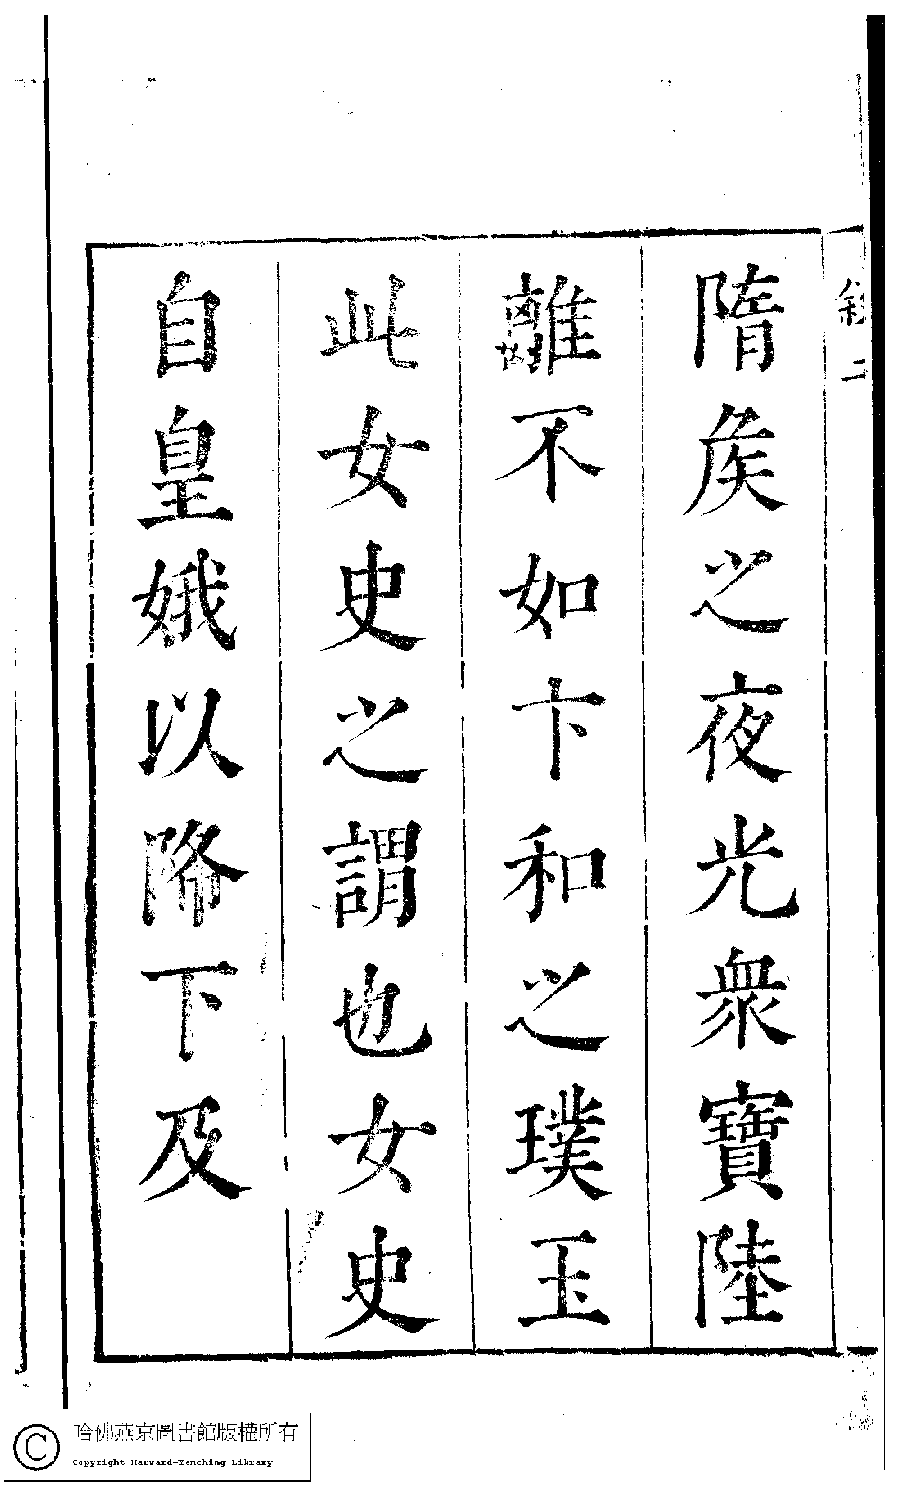 敘 二
隋矦之夜光衆寶陸
離不如卞和之璞玉
此女史之謂也女史
自皇娥以降下及
哈佛燕京圖書館版權所有
Copyright Harvard-Yenching Library